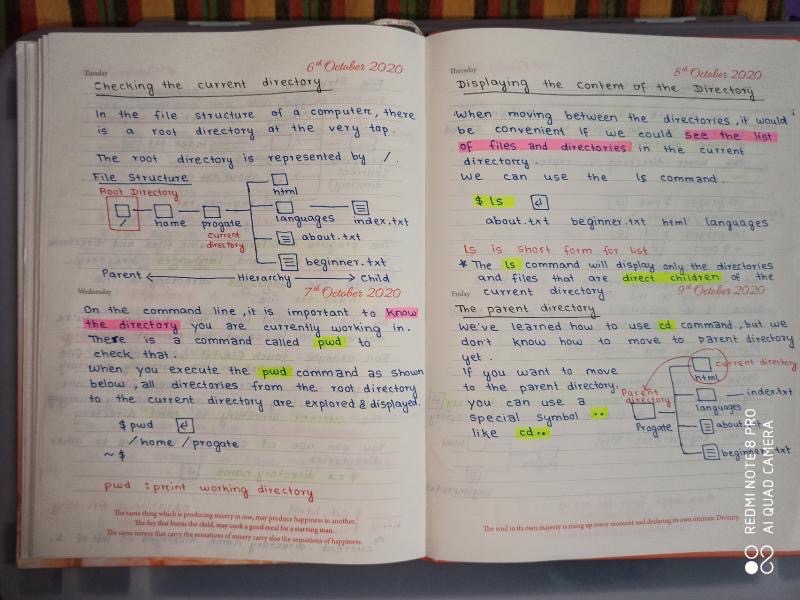 Tuesday
6th October 2020
Checking the current directory
In the file structure of a computer, there
is a root directory at the very top.
The root directory is represented by /.
File Structure
Root Directory
/
home
progate
current
directory
html
languages
index.txt
about.txt
beginner.txt
Parent
Hierarchy
Child
Wednesday
7th October 2020
On the command line, it is important to know
the directory you are currently working in.
There is a command called pwd to
check that.
When you execute the pwd command as shown
below, all directories from the root directory
to the current directory are explored & displayed.
$ pwd
/home /progate
~ $
pwd : print working directory
The same thing which is producing misery in one, may produce happiness in another.
The fire that burns the child, may cook a good meal for a starving man.
The same nerves that carry the sensations of misery carry also the sensations of happiness.
Thursday
8th October 2020
Displaying the content of the Directory
When moving between the directories, it would
be convenient if we could see the list
of files and directories in the current
directory.
We can use the ls command.
$ ls
about.txt beginner.txt html languages
ls is short form for list
* The ls command will display only the directories
and files that are direct children of the
current directory.
Friday
9th October 2020
The parent directory
We've learned how to use cd command, but we
don't know how to move to parent directory
yet.
If you want to move
to the parent directory,
you can use a
special symbol ..
like cd..
current directory
html
Parent
directory
Progate
index.txt
languages
about.txt
beginner.txt
The soul in its own majesty is rising up every moment and declaring its own intrinsic Divinity.
REDMI NOTE 8 PRO
AI QUAD CAMERA